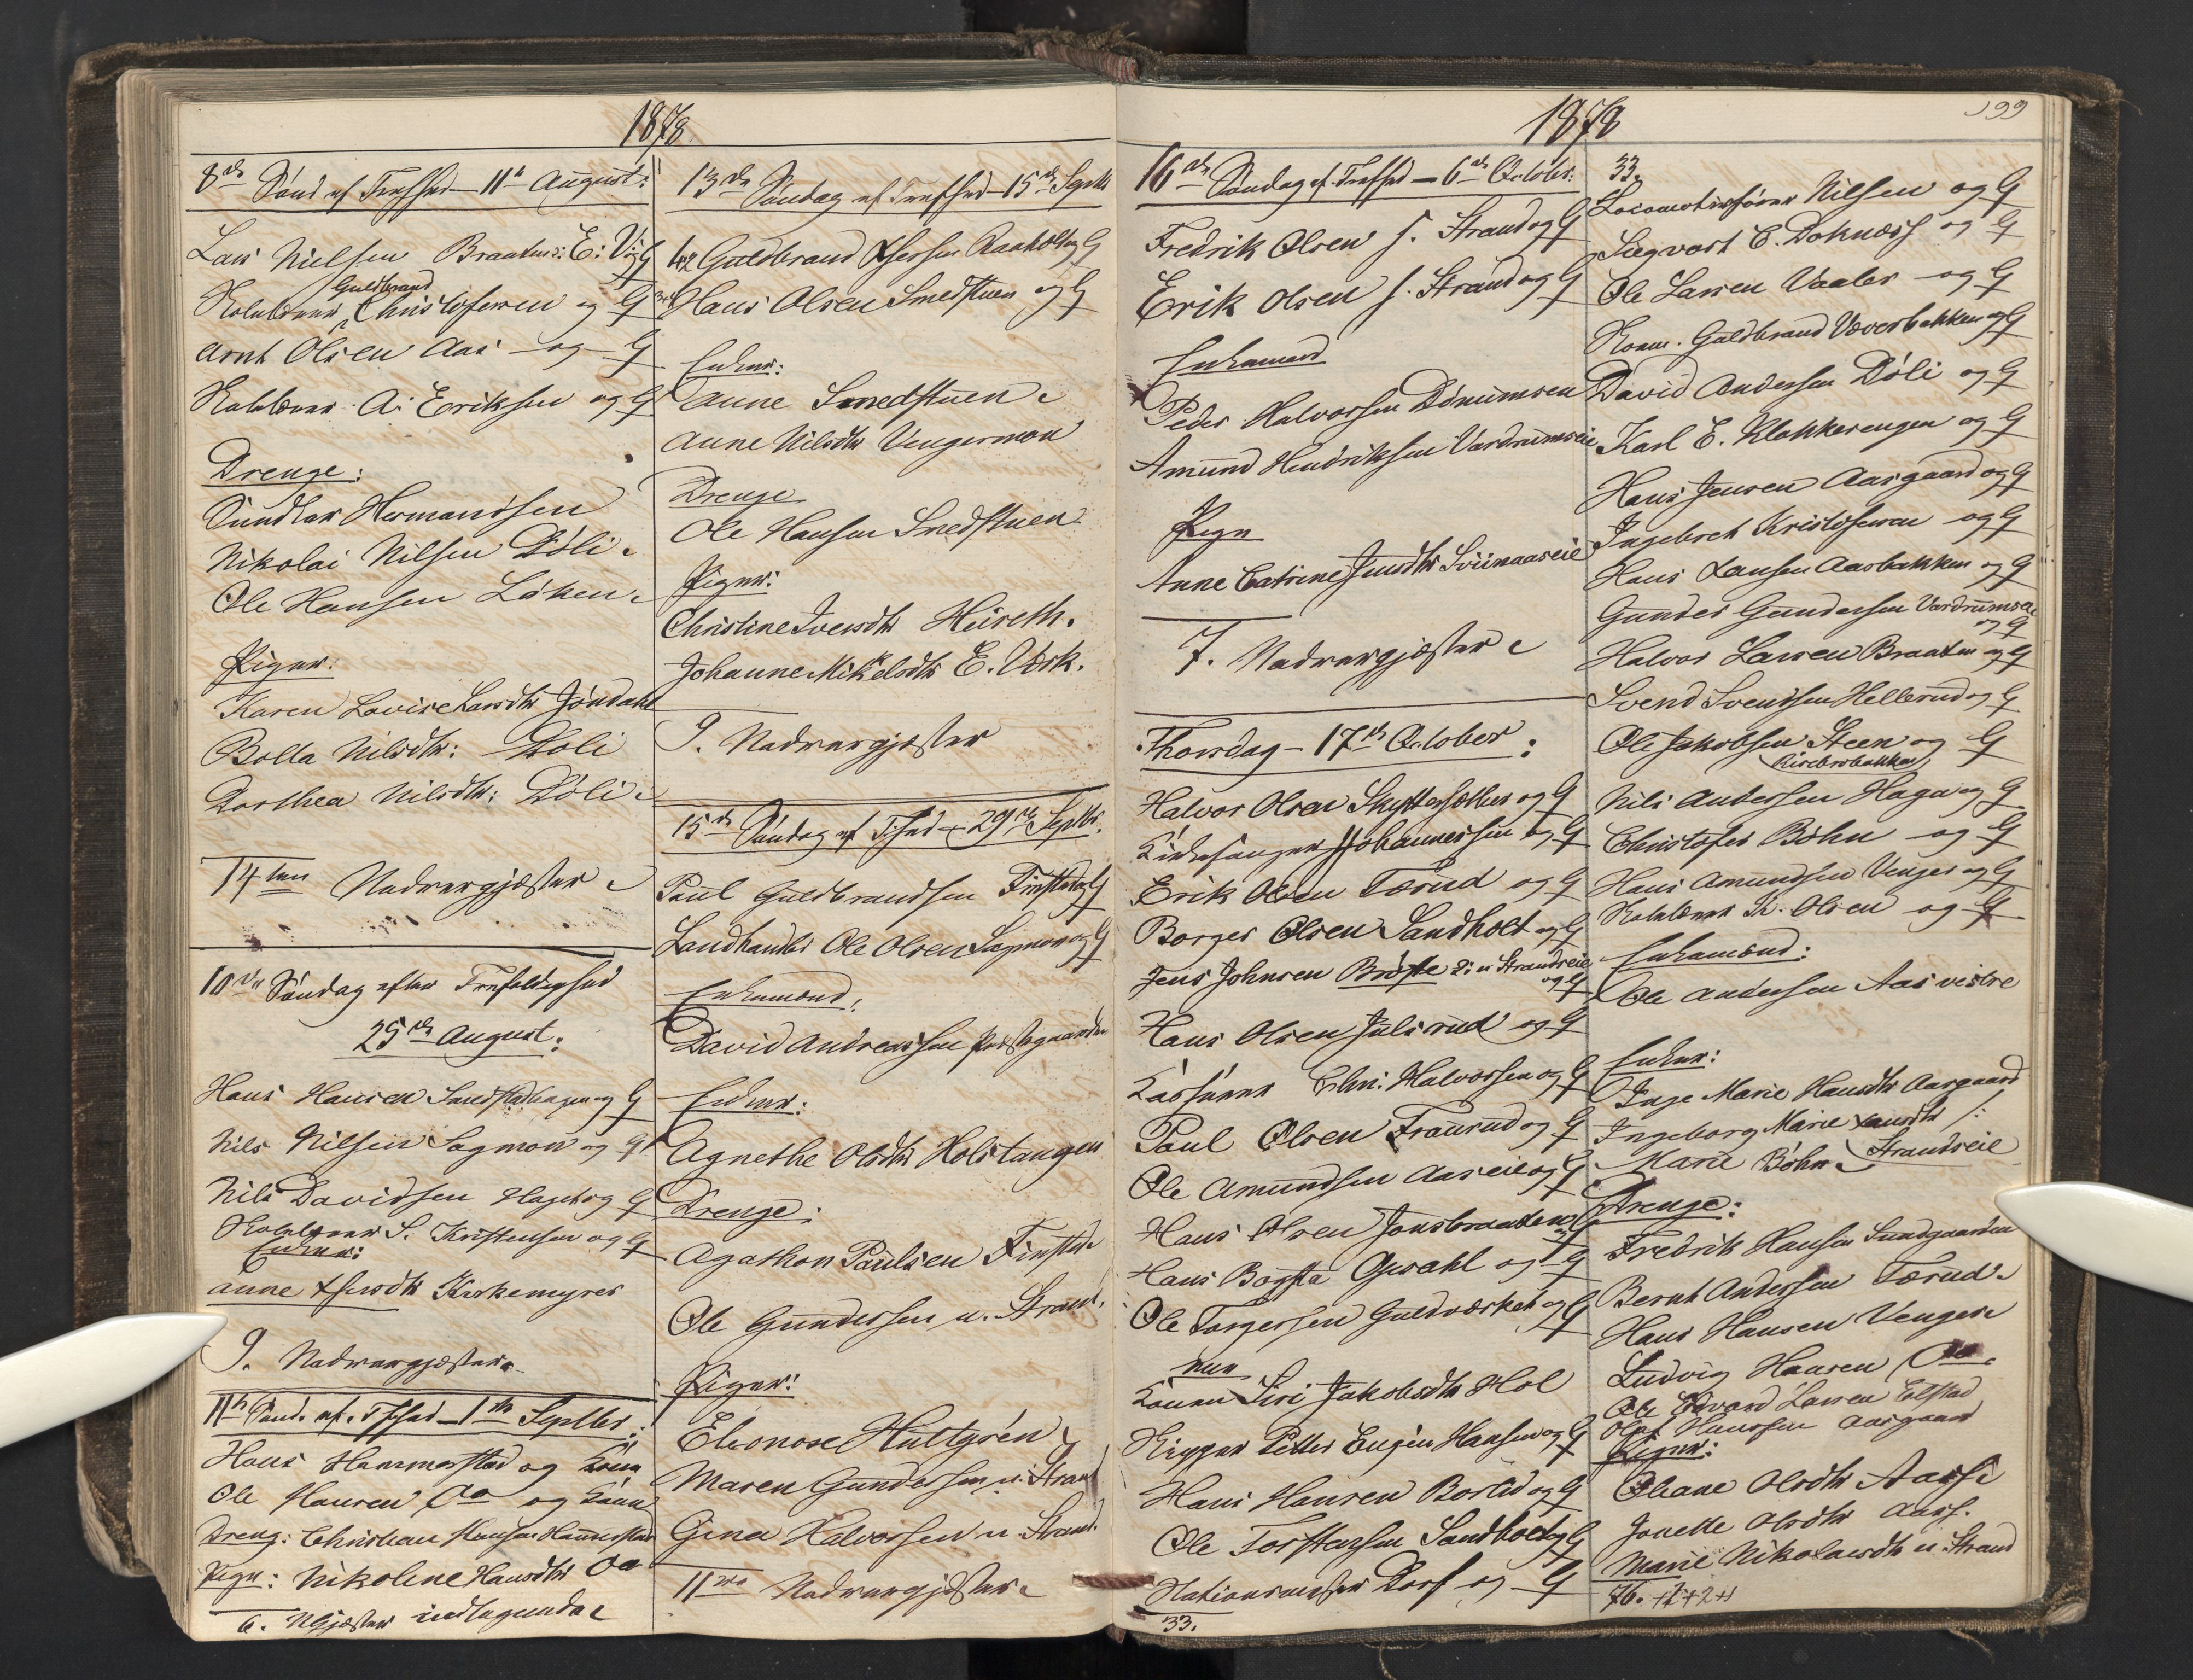 1878
8de Sønd ef Trefhed - 11te August:
Lars Nielsen Braaten: E: V: og G
Guldbrand
Christofersen og G
Arnt Olsen Aas og G
A: Eriksen og G
Drenge:
Hermandsen
Nikolai Nilsen Døli
Ole Hansen Løken
Piger:
Karen Lovise Larsdtr Jøndahl
Bolla Nilsdtr: Døli
Dorthea Nilsdtr: Døli
14ten Nadvergjæster
10de Søndag efter Trefoldighed
25de August:
Hans Hansen og G
Nils Nilsen Sagmon og G
Nils Davidsen og G
S. Kristensen og G
Enker:
Anne Kirkemyren
9. Nadvergjæster
11te Sønd. ef. Trfhed - 1ste Septbr:
Hans Hammerstad og Kone
Ole Hansen Do og Kone
Dreng: Christian Hansen Hammerstad
Pige: Nikoline Hansdtr Do
6. NGjæster
13de Søndag ef Trefhed - 15de Septbr
Guldbrand Raaholt og G
Hans Olsen Smedstuen og G
Enker:
Anne Smedstuen
Anne Nilsdtr Vengermoen
Drenge
Ole Hansen Smedstuen
Piger:
Christine Iversdtr
Johanne Mikkelsdtr E. Værk.
9. Nadvergjæster
15de Søndag ef Trfhed - 29de Septbr.
Paul Guldbrandsen Finstad og G
Landhandler Ole Olsen Sagmoen og G
Enkemænd:
David Andreassen Præstegaarden
Enker:
Agnethe Olsdtr Holstangen
Drenge:
Agathon Paulsen Finstad
Ole Gundersen n. Strand.
Piger:
Eleonore Hultgrén
Maren Gundersen n. Strand
Gina Halvorsen n. Strand.
11 Nadvergjæster
1878
199
16de Søndag ef. Trefhed - 6te October:
Fredrik Olsen s. Strand og G
Erik Olsen s. Strand og G
Enkemænd
Peder Halvorsen Dønnumseie
Amund Hendriksen Vardrumseie
Pige
Anne Catrine
7. Nadvergjæster
Thorsdag - 17de October:
Halvor Olsen Skyttersætther og G
Kirkesanger Johannessen og G
Erik Olsen Tærud og G
Borger Olsen Sandholt og G
Jens Johnsen Brøste Strandseie
og G
Hans Olsen Julsrud og G
Chri: Halvorsen og G
Paul Olsen Traurud og G
Ole Amundsen Aaseie og G
Hans Olsen Jonsbraaten og G
Hans Bøgsta Gwahl og G
Ole Torgersen Guldværket og G
Konen Siri Jakobsdtr Hol
Petter Eugen Hansen og G
Hans Hansen Borlid og G
Ole Torstensen Sandholt og G
Stationsmester Dorf og G
33.
33.
Locomotivfører Nilsen og G
Siegvart E. Doknæss og G
Ole Larsen Vaaler og G
Guldbrand Væverbakken og G
David Andersen Døli og G
Karl E. Klokkerengen og G
Hans Jensen Aasgaard og G
Ingebret Kristofersen og G
Hans Larsen Aasbakken og G
Gunder Gundersen Vardrumseie
og G
Halvor Larsen Braaten og G
Svend Svendsen Hellerud og G
Ole Jakobsen Steen og G
Nils Andersen Hagen og G
Christofer Bøhn og G
Hans Amundsen Venger og G
Olsen og G
Enkemænd:
Ole Andersen Aas vestre
Enker:
Inge Marie Hansdtr Aasgaard
Ingeborg Marie
Marie Bøhn Strandseie
Drenge:
Fredrik Hansen Sundgaarden
Bernt Andersen Tærud
Hans Hansen Venger
Ludvig Hansen Do
Ole Edvard Larsen
Olaf Hanssen Aasgaard
Piger:
Oleane Olsdtr Aass
Jonette Olsdtr Aass.
Marie Nikolaisdtr n Strand
76.